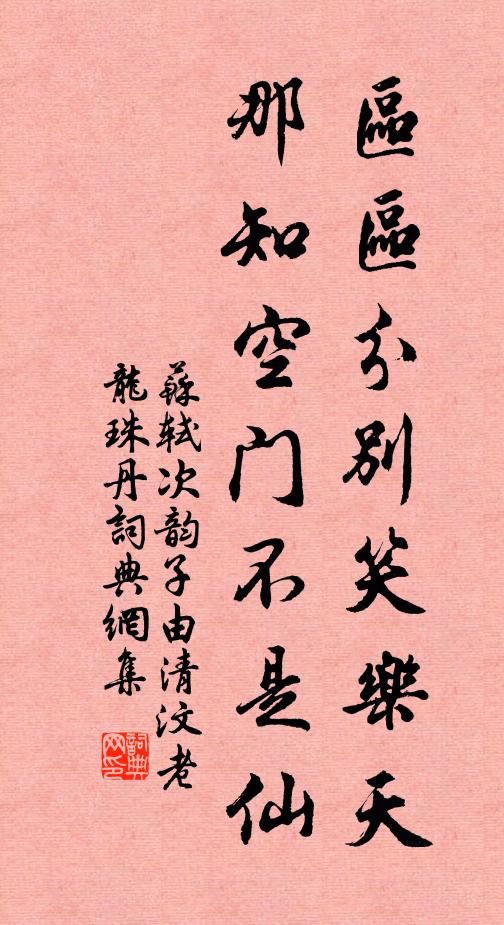 區區分別笑樂天
那知空门不是仙
蘇軾次韵子由清汶老
龍珠丹詞典網集
詞典网印